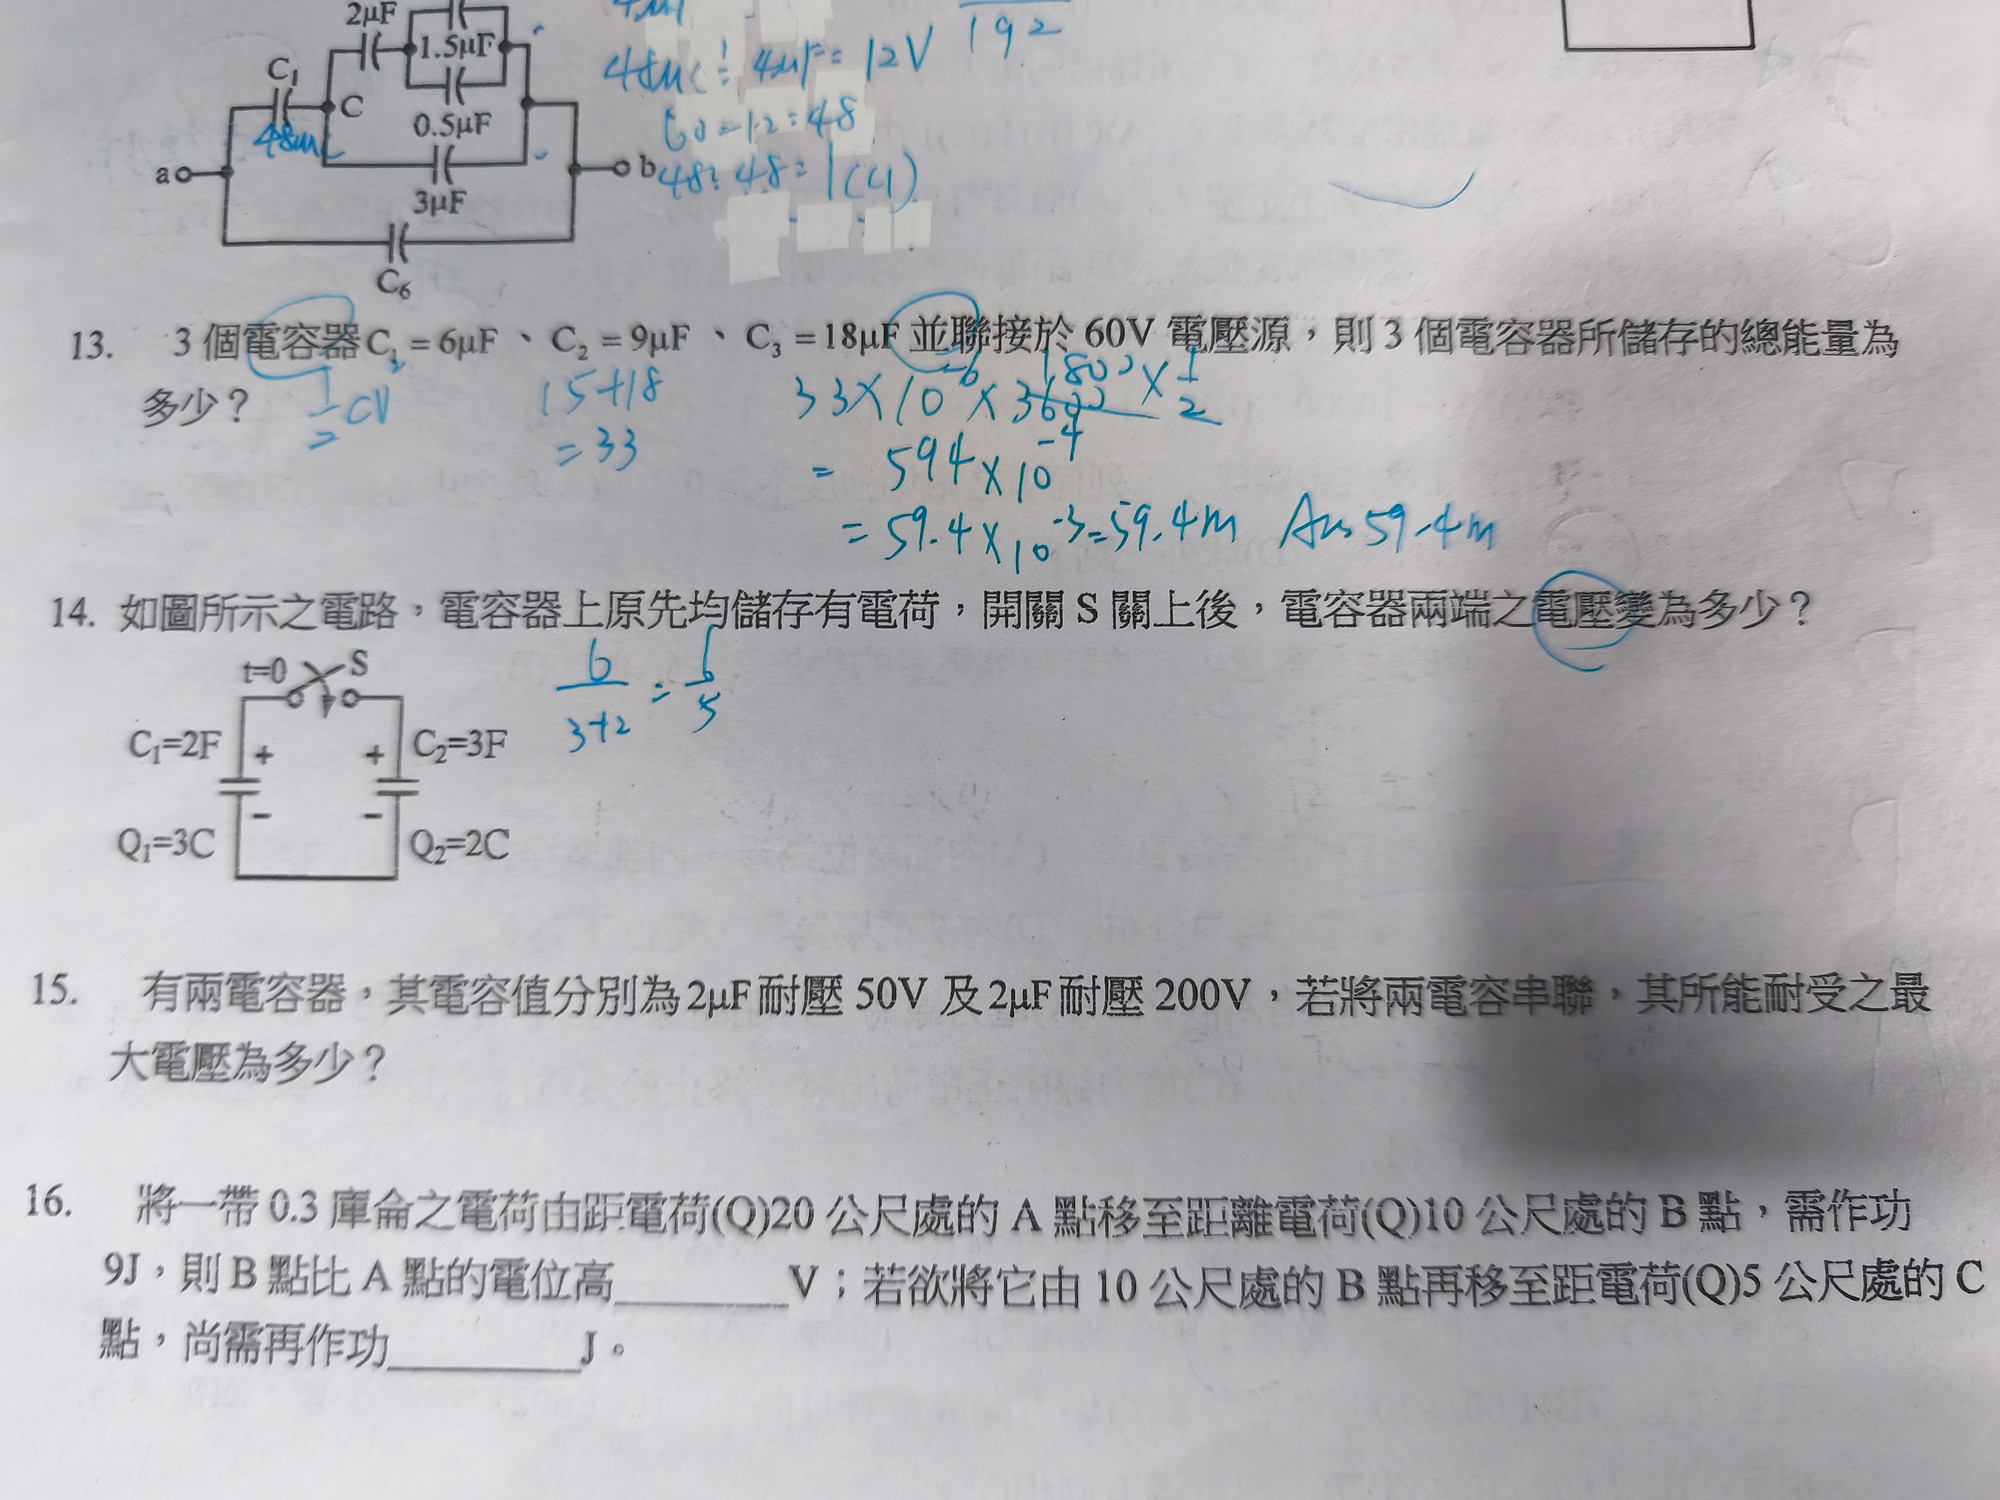 2μF
1.5μF
C₁
C
0.5μF
48μC
a
b
3μF
C₆
192
48μC ÷ 4μF = 12V
60-12=48
48÷48=1(C1)
13. 3 個電容器C₁ = 6μF、C₂ = 9μF、C₃ = 18μF 並聯接於 60V 電壓源，則 3 個電容器所儲存的總能量為
多少？
1/2 CV²
15+18
=33
33×10⁻⁶×3600 1800 × 1/2
= 594×10⁻⁴
= 59.4×10⁻³=59.4m Ans 59.4m
14. 如圖所示之電路，電容器上原先均儲存有電荷，開關 S 關上後，電容器兩端之電壓變為多少？
t=0 S
6/(3+2) = 6/5
C₁=2F + + C₂=3F
- -
Q₁=3C Q₂=2C
15. 有兩電容器，其電容值分別為2μF耐壓 50V 及2μF耐壓 200V，若將兩電容串聯，其所能耐受之最
大電壓為多少？
16. 將一帶 0.3 庫侖之電荷由距電荷(Q)20 公尺處的 A 點移至距離電荷(Q)10 公尺處的 B 點，需作功
9J，則 B 點比 A 點的電位高________V；若欲將它由 10 公尺處的 B 點再移至距電荷(Q)5 公尺處的 C
點，尚需再作功________J。